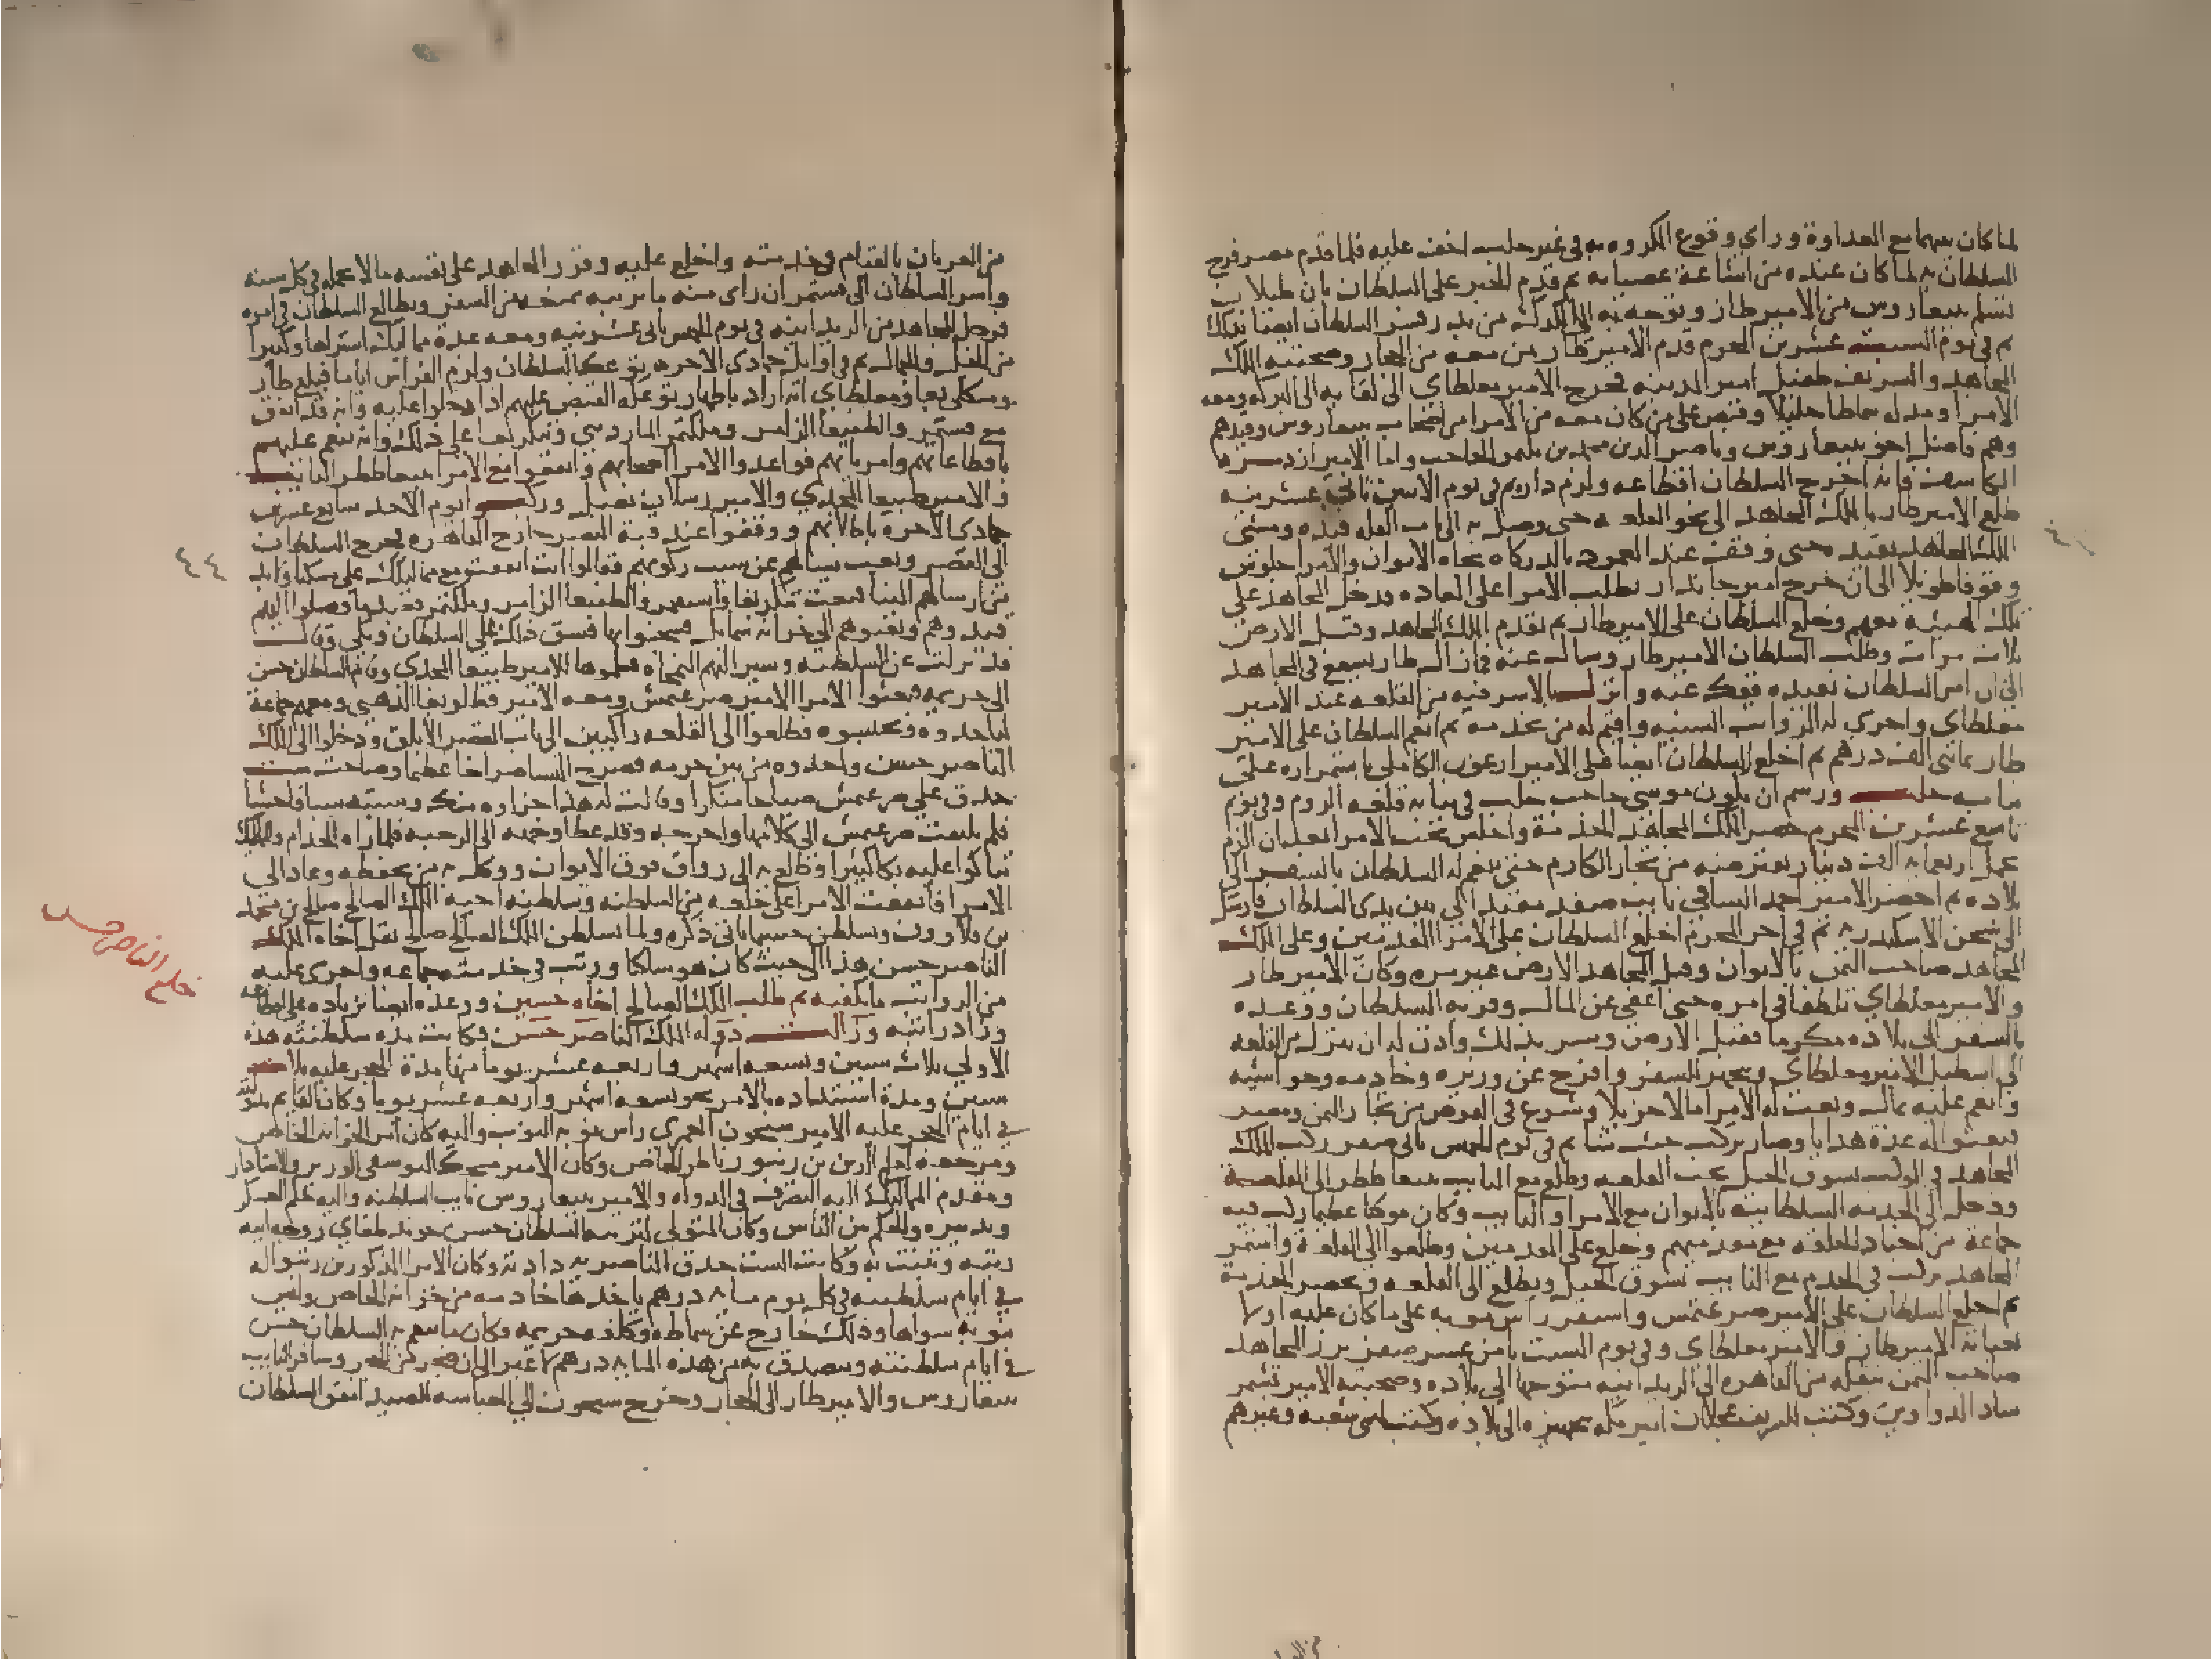 لما كان بينهما مع العداوة وراي وقوع المكروه به في غير حلب اخف عليه فلما قدم مصر فرح
السلطان به لما كان عنده من اشاعة عصيانه ثم قدم الخبر على السلطان بان طيلان
تسلم بيبغاروس من الامير طاز وتوجه به الى الكرك من بدر فسر السلطان ايضا بذلك
ثم في يوم السبت عشرين المحرم قدم الامير طاز بمن معه من الحجاز وصحبته الملك
المجاهد والشريف طفيل امير المدينه فخرج الامير مغلطاي الى لقايه الى البركه ومعه
الامرا ومد له سماطا جليلا وقبض على من كان معه من الامرا من اصحاب بيبغاروس وقيدهم
وهم فاضل اخو بيبغاروس وناصر الدين محمد بن بكتمر الحاجب واما الامير ازدمر
الكاشف فانه اخرج السلطان اقطاعه ولزم داره ثم في يوم الاثنين ثاني عشرينه
طلع الامير طاز بالملك المجاهد الى نحو القلعه حتى وصل به الى باب القله قيده ومشى
الملك المجاهد بقيده حتى وقف عند العمود بالدركاه تجاه الايوان والامرا جلوس
وقوفا طويلا الى ان خرج امير جاندار يطلب الامرا على العاده ودخل المجاهد على
تلك الهيئه معهم وخلع السلطان على الامير طاز ثم تقدم الملك المجاهد وقبل الارض
ثلاث مرات وطلب السلطان الامير طاز وساله عنه فما زال طاز يشفع في المجاهد
الى ان امر السلطان بقيده ففك عنه وانزل بالاشرفيه من القلعه عند الامير
مغلطاي واجرى له الرواتب السنيه واقيم له من يخدمه ثم انعم السلطان على الامير
طاز بمائتي الف درهم ثم اخلع السلطان ايضا على الامير ارغون الكاملي باستمراره على
نيابه حلب ورسم ان يكون موسى حاجب حلب في نيابه قلعه الروم وفي يوم
تاسع عشرين المحرم حضر الملك المجاهد الخدمة واجلس تحت الامرا بعد ان الزم
بحمل اربعمايه الف دينار يقترضه من تجار الكارم حتى ينعم له السلطان بالسفر الى
بلاده ثم احضر الامير احمد الساقي نايب صفد مقيدا الى بين يدي السلطان فارسل
الى سجن الاسكندريه ثم في اخر المحرم اخلع السلطان على الامرا المقدمين وعلى الملك
المجاهد صاحب اليمن بالايوان وقبل المجاهد الارض غير مره وكان الامير طاز
والامير مغلطاي تلطفا في امره حتى اعفي عن المال وقربه السلطان ووعده
بالسفر الى بلاده مكرما فقبل الارض وسر بذلك واذن له ان ينزل من القلعه
الى اسطبل الامير مغلطاي ويتجهز للسفر وافرج عن وزيره وخادمه وحواشيه
وانعم عليه بمال وبعث له الامرا مالا جزيلا وشرع في القرض من تجار اليمن ومصر
فبعثوا له عدة هدايا وصار يركب حيث شا ثم في يوم الخميس ثاني صفر ركب الملك
المجاهد في الموكب بسوق الخيل تحت القلعه وطلع مع النايب بيبغا ططر الى القلعه
ودخل الى الخدمه السلطانيه بالايوان مع الامرا والنايب وكان موكبا عظيما ركب فيه
جماعة من اجناد الحلقه مع مقدميهم وخلع على المقدمين وطلعوا الى القلعة واستمر
المجاهد يركب في الخدم مع النايب بسوق الخيل ويطلع الى القلعه ويحضر الخدمة
ثم اخلع السلطان على الامير صرغتمش واستقر راس نوبه على ما كان عليه اولا
بعنايه الامير طاز والامير مغلطاي وفي يوم السبت ثامن عشر صفر برز المجاهد
صاحب اليمن بثقله من القاهره الى الريدانيه متوجها الى بلاده وصحبته الامير قشتمر
شاد الدواوين وكتب للشريف عجلان امير مكه بتجهيزه الى بلاده وكتب لبني شعبه وغيرهم
من العربان بالقيام في خدمته واخلع عليه وقرر المجاهد على نفسه مالا يحمله في كل سنه
واسر السلطان الى قشتمر ان راى منه ما يريبه يمنعه من السفر ويطالع السلطان في امره
فرحل المجاهد من الريدانيه في يوم الخميس ثاني عشرينه ومعه عدة مماليك اشتراها وكثيرا
من الخيل والجمال ثم في اوايل جمادى الاخره توعك السلطان ولزم الفراش اياما فبلغ طاز
ومنكلى بغا ومغلطاي انه اراد باظهار توعكه القبض عليهم اذا دخلوا عليه وانه قد اتفق
مع قشتمر والطنبغا الزامر وملكتمر المارديني وتنكزبغا على ذلك وانه ينعم عليهم
باقطاعاتهم وامرياتهم فواعدوا الامرا اصحابهم واتفقوا مع الامير بيبغا ططر النايب
والامير طيبغا المجدي والامير رسلان بصل وركبوا يوم الاحد سابع عشرين
جمادى الاخره باطلابهم ووقفوا عند قبة النصر خارج القاهره فخرج السلطان
الى القصر وبعث يسالهم عن سبب ركوبهم فقالوا انت اتفقت مع مماليكك على مسكنا ولا بد
من ارسالهم الينا فبعث تنكزبغا وقشتمر والطنبغا الزامر وملكتمر فعندما وصلوا اليهم
قيدوهم وبعثوهم الى خزانه شمايل فسجنوا بها فشق ذلك على السلطان وبكى وقال
قد نزلت عن السلطنه وسير اليهم النمجاه فسلموها للامير طيبغا المجدي وقام السلطان حسن
الى حريمه فبعثوا الامرا الامير صرغتمش ومعه الامير قطلوبغا الذهبي ومعهم جماعة
لياخذوه ويحبسوه فطلعوا الى القلعه راكبين الى باب القصر الابلق ودخلوا الى الملك
الناصر حسن واخذوه من بين حرمه فصرخ النسا صراخا عظيما وصاحت ست
حدق على صرغتمش صياحا منكرا وقالت له هذا جزاوه منك وسبته سبا فاحشا
فلم يلتفت صرغتمش الى كلامها واخرجه وقد غطا وجهه الى الرحبه فلما راه الخدام والمماليك
تباكوا عليه بكا كثيرا وطلع به الى رواق فوق الايوان ووكل به من يحفظه وعاد الى
الامرا فاتفقت الامرا على خلعه من السلطنه وسلطنه اخيه الملك الصالح صالح بن محمد
بن قلاوون وتسلطن حسبما ياتي ذكره ولما تسلطن الملك الصالح صالح نقل اخاه الملك
الناصر حسن هذا الى حيث كان هو ساكنا ورتب في خدمته جماعه واجرى عليه
من الرواتب ما يكفيه ثم طلب الملك الصالح اخاه حسين ووعده ايضا بزياده على اقطاعه
وزاد راتبه وزالت دولة الملك الناصر حسن فكانت مده سلطنته هذه
الاولى ثلاث سنين وتسعه اشهر واربعه عشر يوما منها مدة الحجر عليه ثلاث
سنين ومدة استبداده بالامر نحو تسعه اشهر واربعه عشر يوما وكان القايم بدولته
في ايام الحجر عليه الامير شيخون العمري راس نوبه النوب واليه كان امر الخزانه الخاص
ومرجعه لعلم الدين بن زنبور ناظر الخاص وكان الامير منجك اليوسفي الوزير والاستادار
ومقدم المماليك اليه التصرف في الدوله والامير بيبغاروس نايب السلطنه واليه حكم العسكر
وتدبيره والحكم بين الناس وكان المتولي لتربيه السلطان حسن خوند طغاي زوجه ابيه
ربته وتبنت به وكانت الست حدق الناصريه دادته وكان الامرا المذكورين رتبوا له
في ايام سلطنته في كل يوم مائه درهم ياخذها خادمه من خزانه الخاص وليس
ينوبه سواها وذلك خارج عن سماطه وكلفه حريمه وكان ما ينعم به السلطان حسن
في ايام سلطنته ويتصدق به من هذه المايه درهم لا غير الى ان ضجر من الحجر وسافر النايب
بيبغاروس والامير طاز الى الحجاز وخرج شيخون الى العباسه للصيد اتفق السلطان
خلع الناصر حسن
٤٤